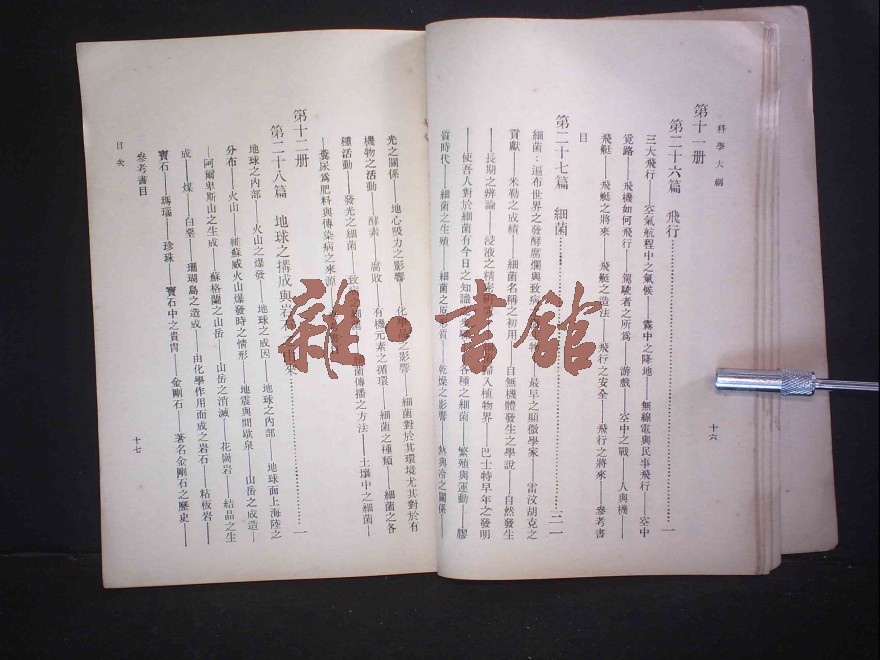 科學大綱
第十一册
第二十六篇 飛行 一
三大飛行——空氣航程中之氣候——霧中之降地——無線電與民事飛行——空中
覓路——飛機如何飛行——駕駛者之所爲——游戲——空中之戰——人與機——
飛艇——飛艇之將來——飛艇之造法——飛行之安全——飛行之將來——參考書
目
第二十七篇 細菌 三一
細菌：遍布世界之發酵腐爛與致病 最早之顯微學家——雷汶胡克之
貢獻——米勒之成績——細菌名稱之初用——自無機體發生之學說——自然發生
——長期之辨論——浸液之精密 歸入植物界——巴士特早年之發明
——使吾人對於細菌有今日之知識 各種之細菌——繁殖與運動——膠
質時代——細菌之生殖——細菌之原 質——乾燥之影響——熱與冷之關係——
十六
光之關係——地心吸力之影響——化學品之影響——細菌對於其環境尤其對於有
機物之活動——酵素——腐敗——有機元素之循環——細菌之種類——細菌之各
種活動——發光之細菌——致病之細菌——細菌傳播之方法——土壤中之細菌——
——糞尿爲肥料與傳染病之來源
第十二册
第二十八篇 地球之構成與岩石 由來 一
地球之內部——火山之爆發——地球之成因——地球之內部——地球面上海陸之
分布——火山——維蘇威火山爆發時之情形——地震與間歇泉——山岳之成造——
——阿爾卑斯山之生成——蘇格蘭之山岳——山岳之消滅——花崗岩——結晶之生
成——煤——白堊——珊瑚島之造成——由化學作用而成之岩石——粘板岩——
寶石——瑪瑙——珍珠——寶石中之貴胄——金剛石——著名金剛石之歷史——
參考書目
目次
十七
雜·書館